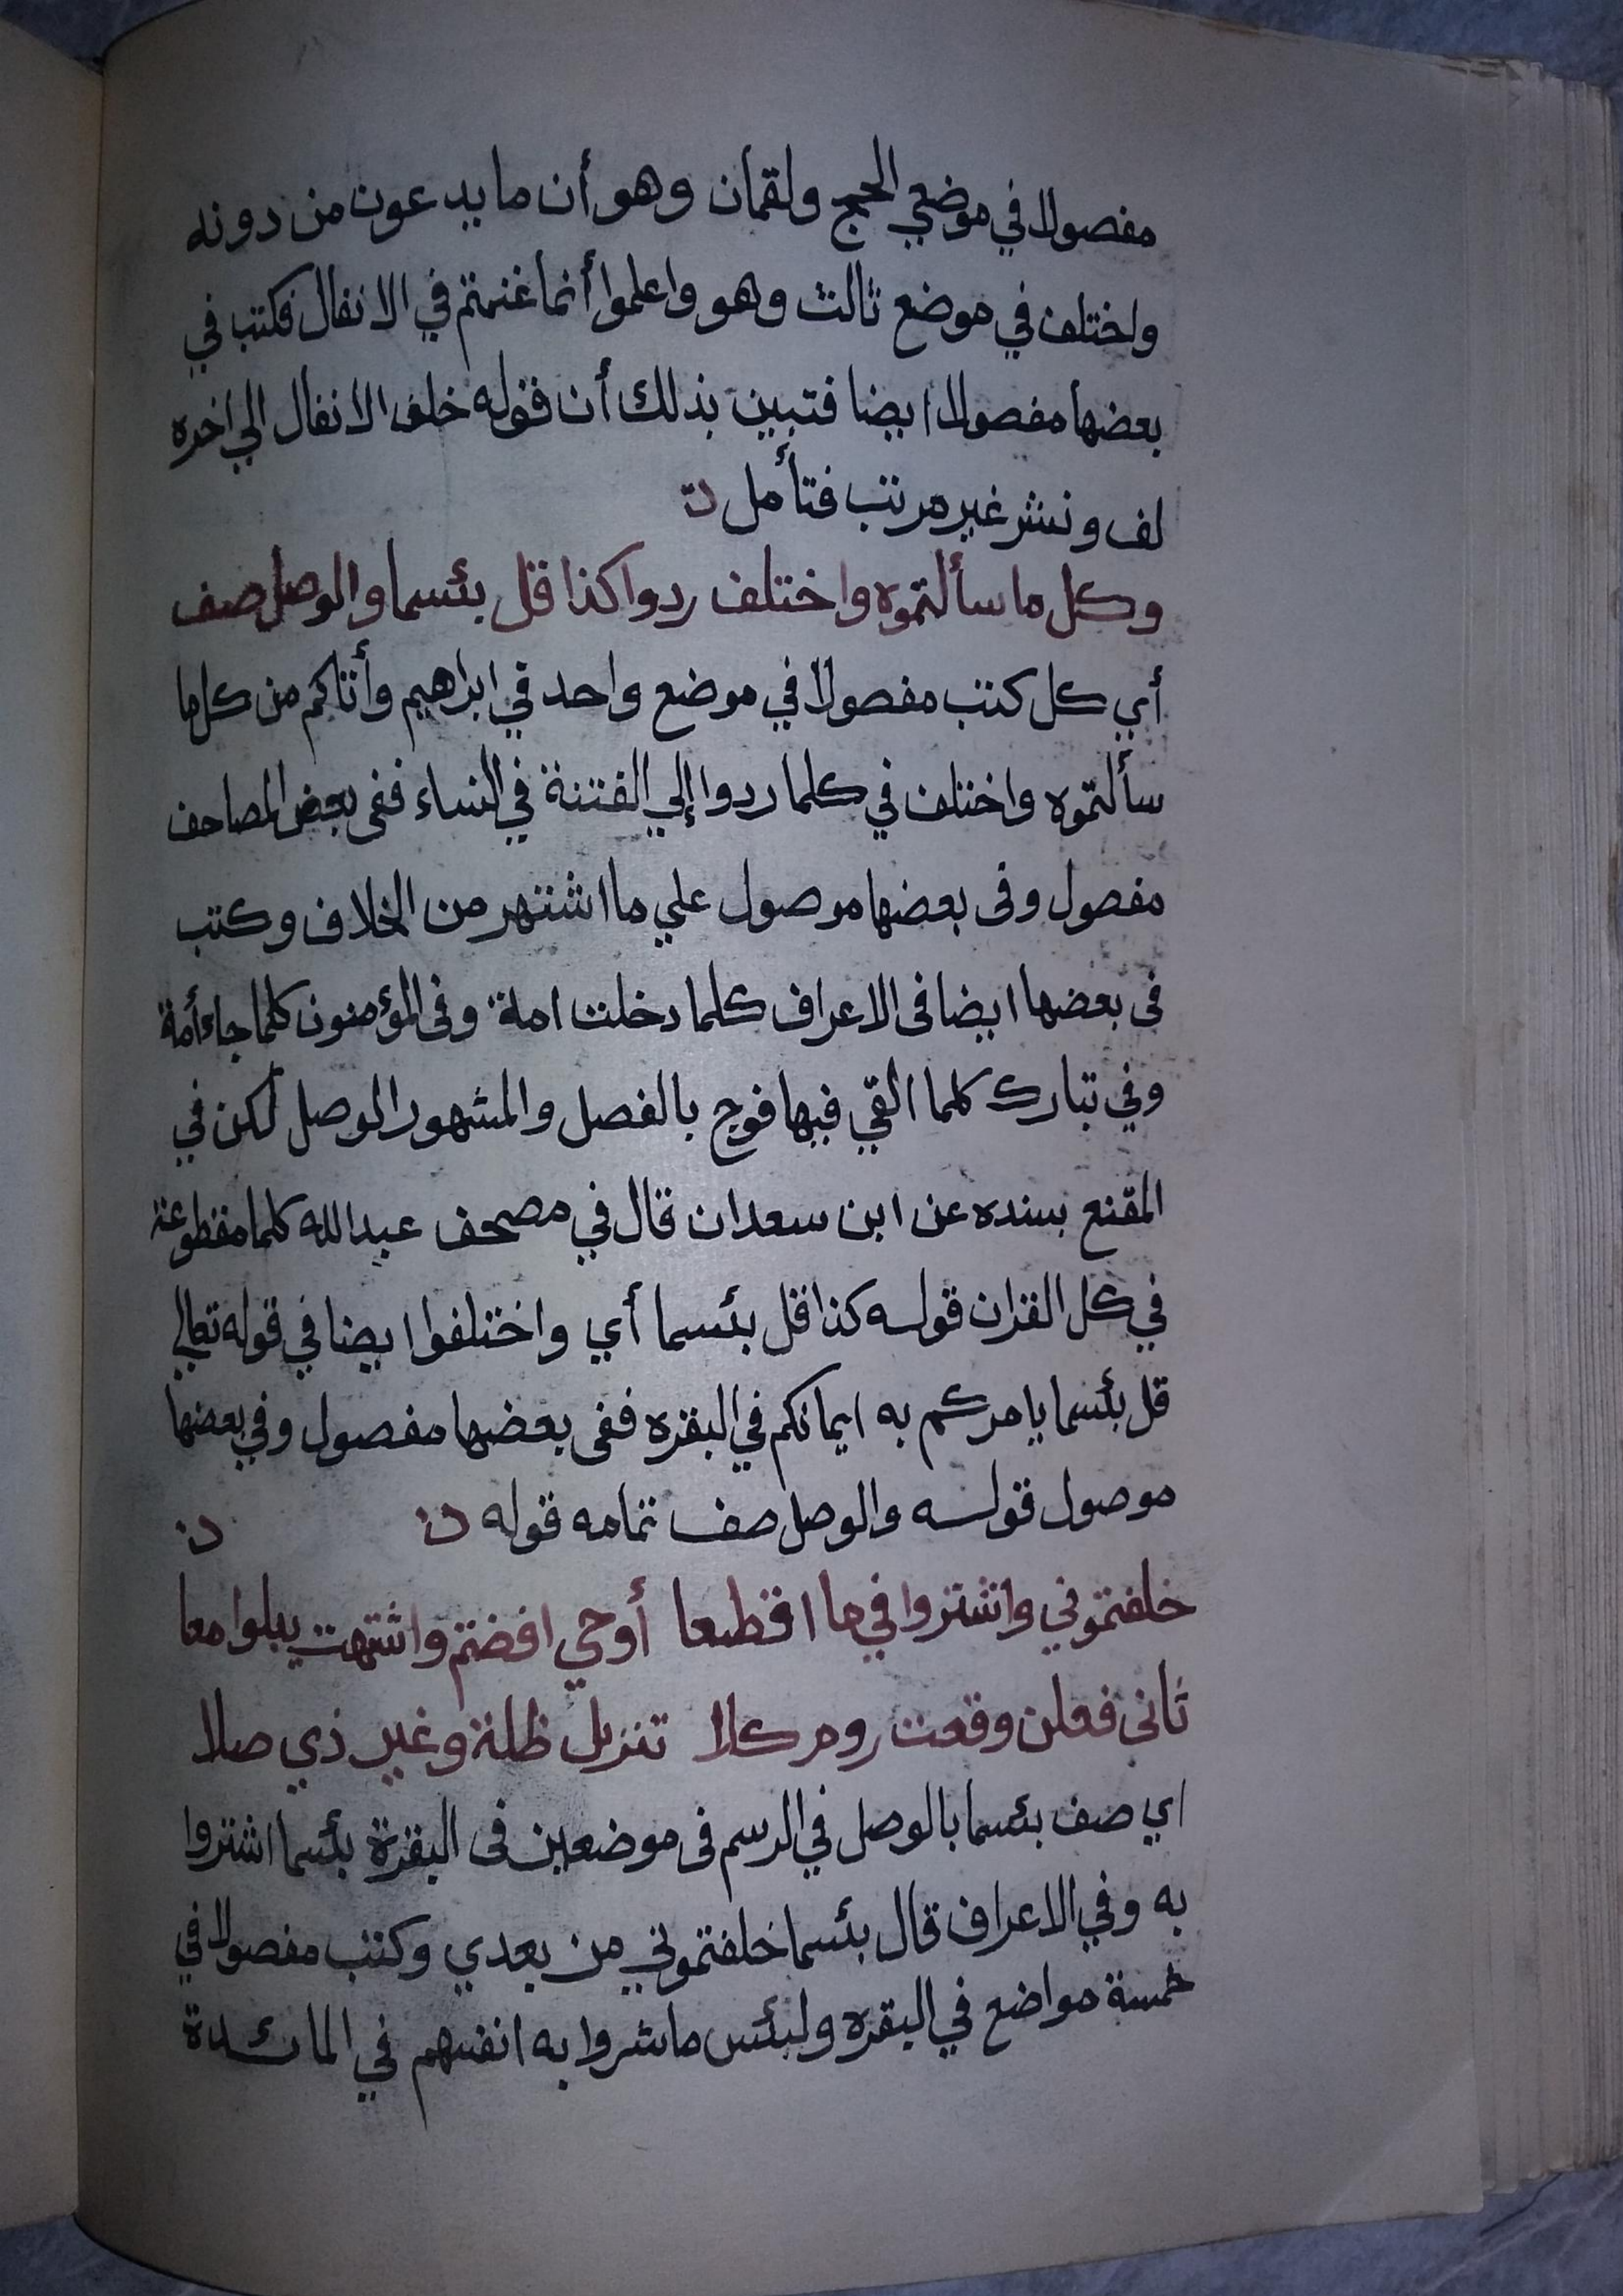 مفصولا في موضعي الحج ولقمان وهو أن ما يدعون من دونه
واختلف في موضع ثالث وهو واعلموا أنما غنمتم في الانفال فكتب في
بعضها مفصولا ايضا فتبين بذلك أن قوله خلف الانفال الي اخره
لف ونشر غير مرتب فتأمل ن
وكل ما سألتموه واختلف ردوا كذا قل بئسما والوصل صف
أي كل كتب مفصولا في موضع واحد في ابراهيم وأتاكم من كل ما
سألتموه واختلف في كلما ردوا إلي الفتنة في النساء ففى بعض المصاحف
مفصول وفى بعضها موصول علي ما اشتهر من الخلاف وكتب
فى بعضها ايضا فى الاعراف كلما دخلت امة وفى المؤمنون كلما جاء أمة
وفي تبارك كلما القي فيها فوج بالفصل والمشهور الوصل لكن في
المقنع بسنده عن ابن سعدان قال في مصحف عبد الله كلما مقطوعة
في كل القران قوله كذا قل بئسما أي واختلفوا ايضا في قوله تعالي
قل بئسما يامركم به ايمانكم في البقره ففى بعضها مفصول وفي بعضها
موصول قوله والوصل صف تمامه قوله ن ن
خلفتموني واشتروا في ما اقطعا أوحي افضتم واشتهت يبلوا معا
ثانى فعلن وقعت روم كلا تنزيل ظلة وغير ذي صلا
اي صف بئسما بالوصل في الرسم فى موضعين فى البقرة بئسما اشتروا
به وفي الاعراف قال بئسما خلفتموني من بعدي وكتب مفصولا في
خمسة مواضع في البقره ولبئس ما شروا به انفسهم في المائدة